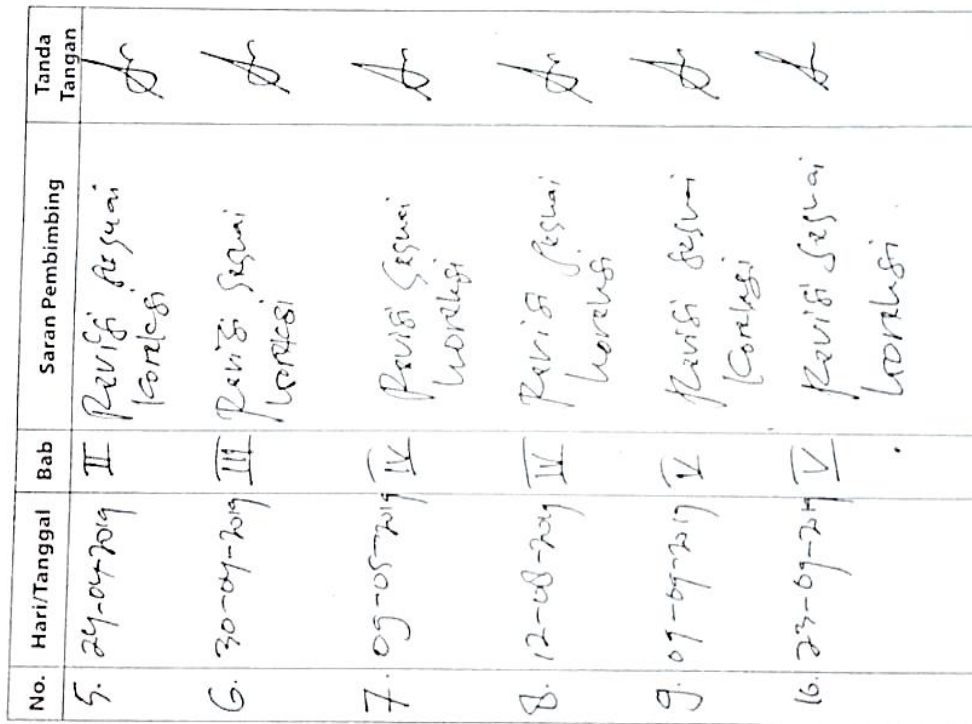 No. Hari/Tanggal Bab Saran Pembimbing Tanda Tangan
5. 24-04-2019 II Revisi sesuai
koreksi
6. 30-04-2019 III Revisi sesuai
koreksi
7. 09-05-2019 IV Revisi sesuai
koreksi
8. 12-08-2019 IV Revisi sesuai
koreksi
9. 09-09-2019 V Revisi sesuai
koreksi
10. 23-09-2019 V Revisi sesuai
koreksi